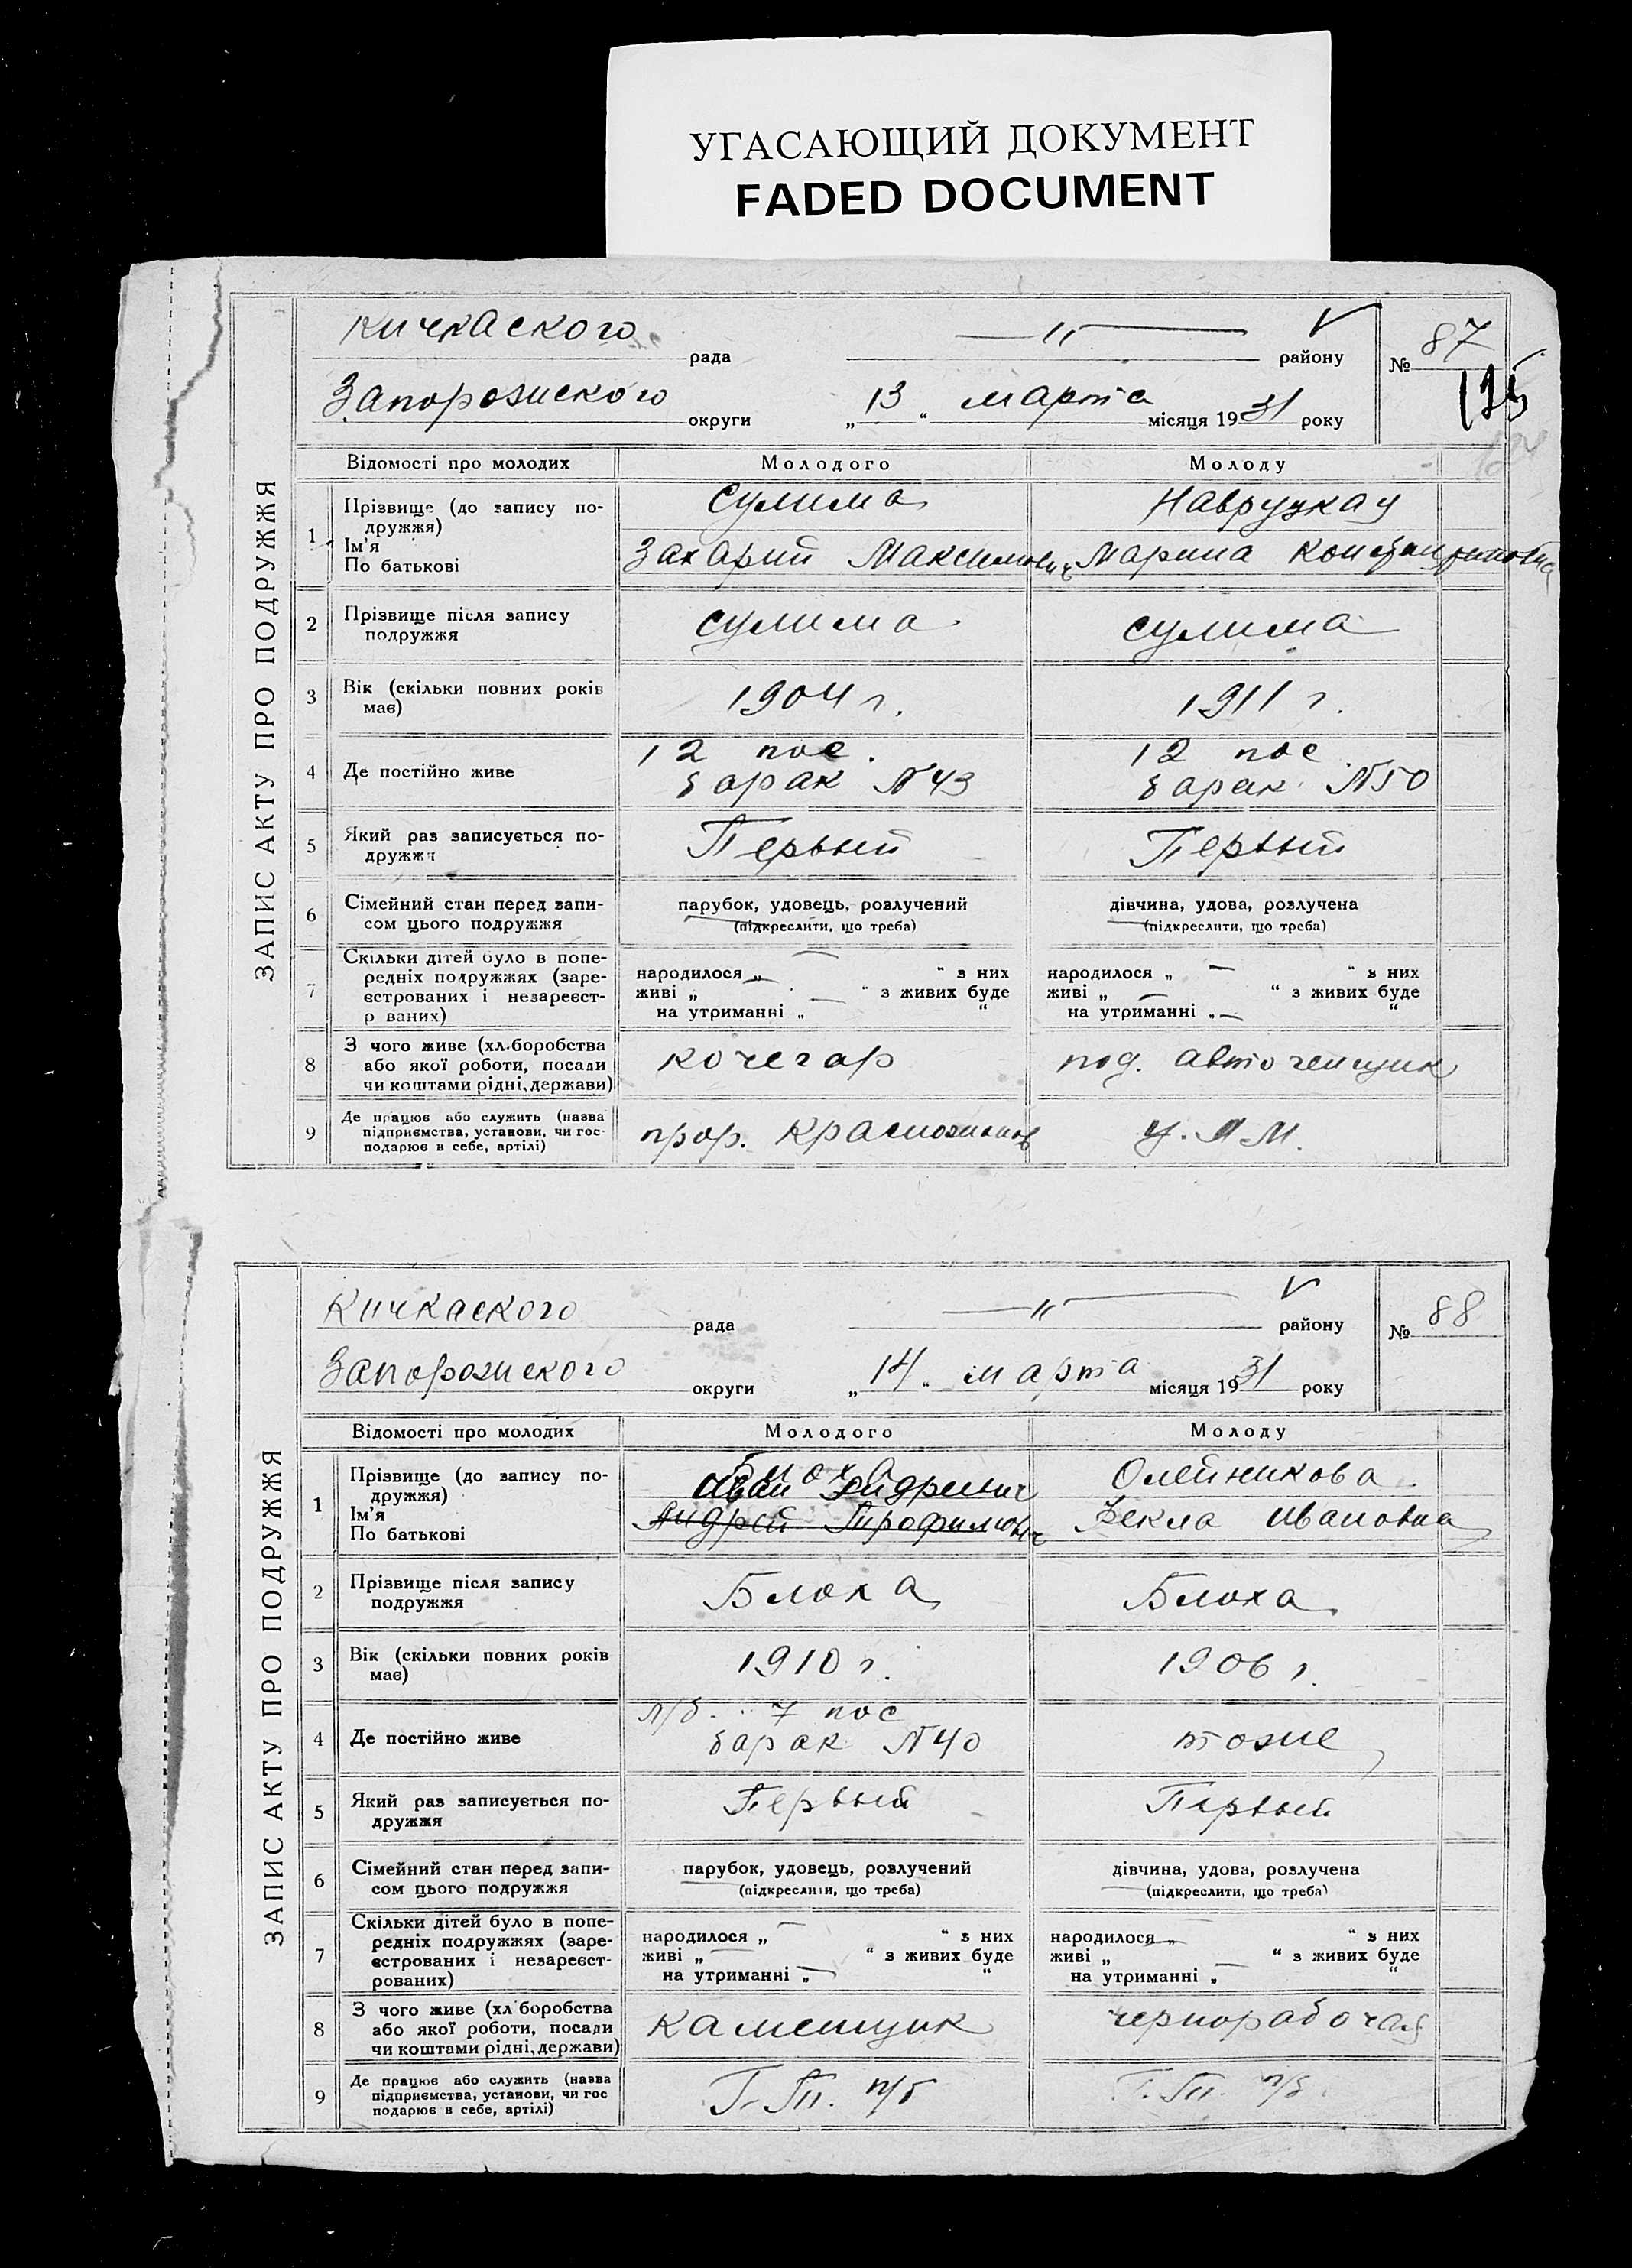 УГАСАЮЩИЙ ДОКУМЕНТ
FADED DOCUMENT
ЗАПИС АКТУ ПРО ПОДРУЖЖЯ
Кичкаского рада — " — району V
№ 87
125
124
Запорожского округи „ 13 “ марта місяця 1931 року
Відомості про молодих Молодого Молоду
1 Прізвище (до запису по- Сулима
дружжя)
Ім'я Захарий Максимович Марина Константиновна
По батькові
2 Прізвище після запису Сулима Сулима
подружжя
3 Вік (скільки повних років 1904 г. 1911 г.
має)
12 пос. 12 пос.
4 Де постійно живе барак N 43 барак N 50
5 Який раз записується по- Первый Первый
дружжя
6 Сімейний стан перед запи- парубок, удовець, розлучений дівчина, удова, розлучена
сом цього подружжя (підкреслити, що треба) (підкреслити, що треба)
Скільки дітей було в попе-
редніх подружжях (заре- народилося „ — “ з них народилося „ — “ з них
7 єстрованих і незареєст- живі „ — “ з живих буде живі „ — “ з живих буде
р ваних) на утриманні „ — “ на утриманні „ — “
З чого живе (хл.боробства
8 або якої роботи, посади кочегар под.
чи коштами рідні, держави)
Де працює або служить (назва
9 підприємства, установи, чи гос- прор.
подарює в себе, артілі)
ЗАПИС АКТУ ПРО ПОДРУЖЖЯ
Кичкаского рада — " — району V
№ 88
Запорожского округи „ 14 “ марта місяця 1931 року
Відомості про молодих Молодого Молоду
1 Прізвище (до запису по- Блоха Олейникова
дружжя) Иван Андреевич
Ім'я Андрей Трофимович Векла Ивановна
По батькові
2 Прізвище після запису Блоха Блоха
подружжя
3 Вік (скільки повних років 1910 г. 1906 г.
має)
п/б. 7 пос
4 Де постійно живе барак N 40 тоже
5 Який раз записується по- Первый Первый
дружжя
6 Сімейний стан перед запи- парубок, удовець, розлучений дівчина, удова, розлучена
сом цього подружжя (підкреслити, що треба) (підкреслити, що треба)
Скільки дітей було в попе-
редніх подружжях (заре- народилося „ — “ з них народилося „ — “ з них
7 єстрованих і незареєст- живі „ — “ з живих буде живі „ — “ з живих буде
рованих) на утриманні „ — “ на утриманні „ “
З чого живе (хл боробства
8 або якої роботи, посади Каменщик чернорабочая
чи коштами рідні, держави)
Де працює або служить (назва
9 підприємства, установи, чи гос Г. П. п/б Г. П. п/б.
подарює в себе, артілі)